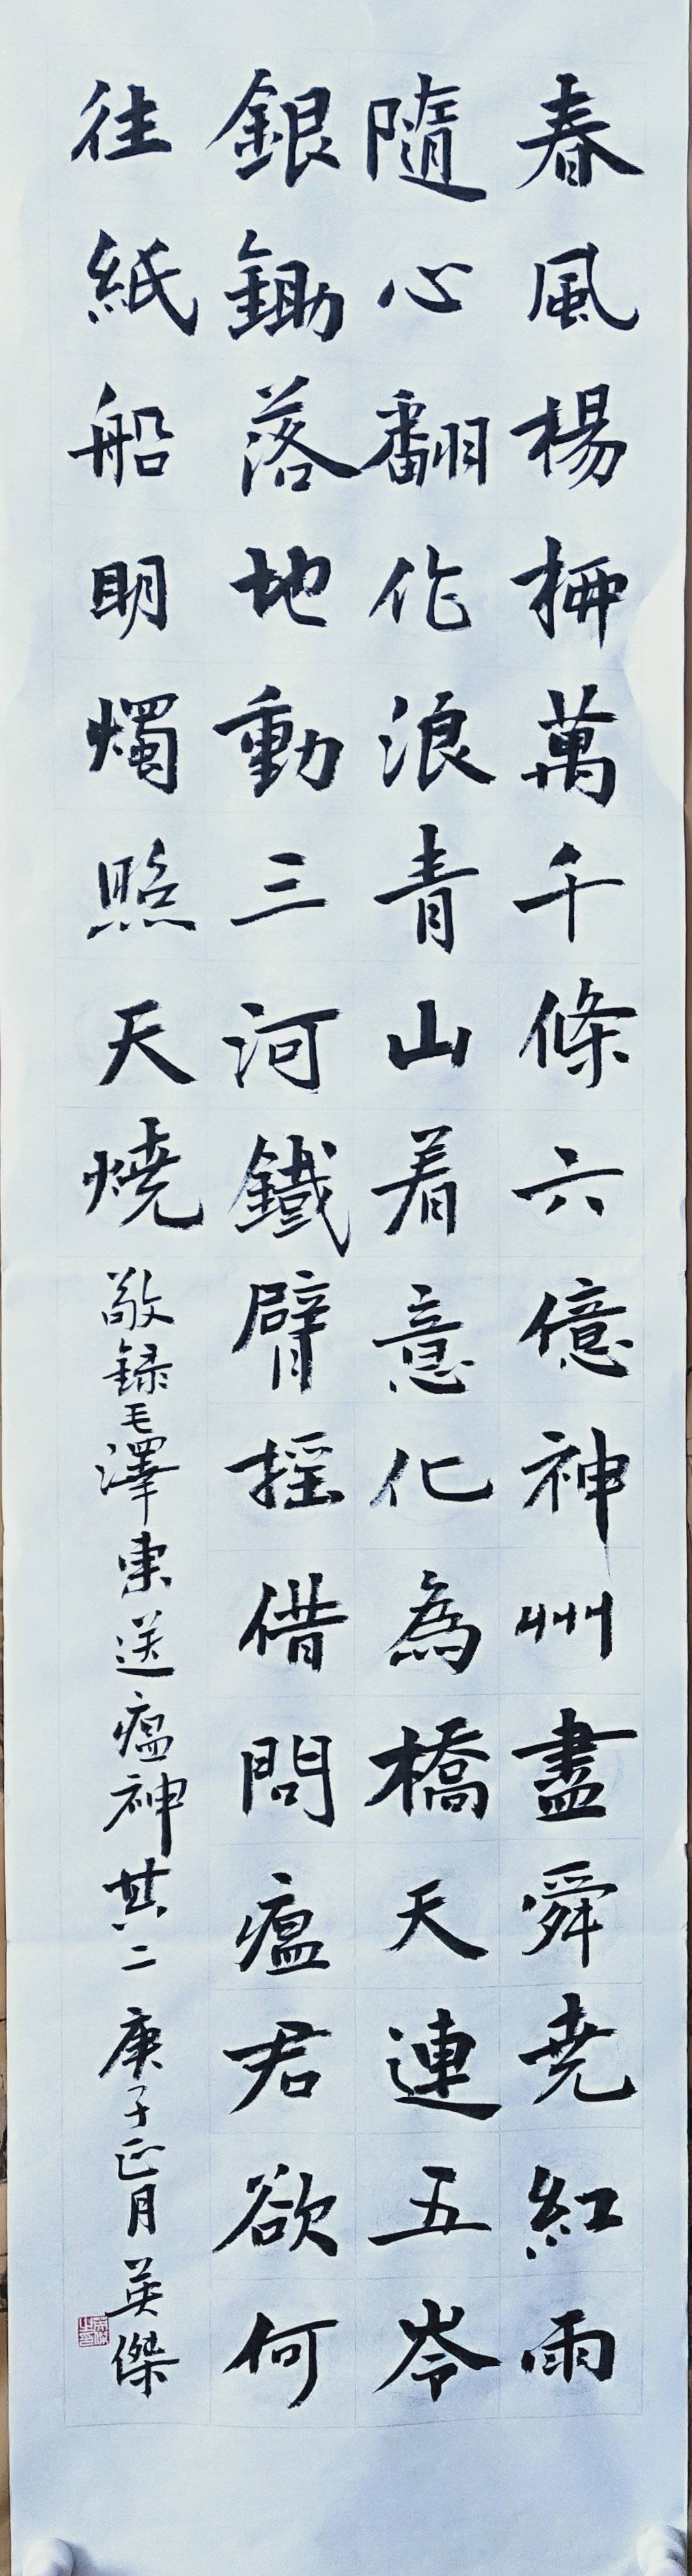 春風楊柳萬千條六億神州盡舜尭紅雨
隨心翻作浪青山着意化為橋天連五岺
銀鋤落地動三河鐵臂摇借問瘟君欲何
往紙船明燭照天燒
敬録毛澤東送瘟神其二 庚子正月 英傑